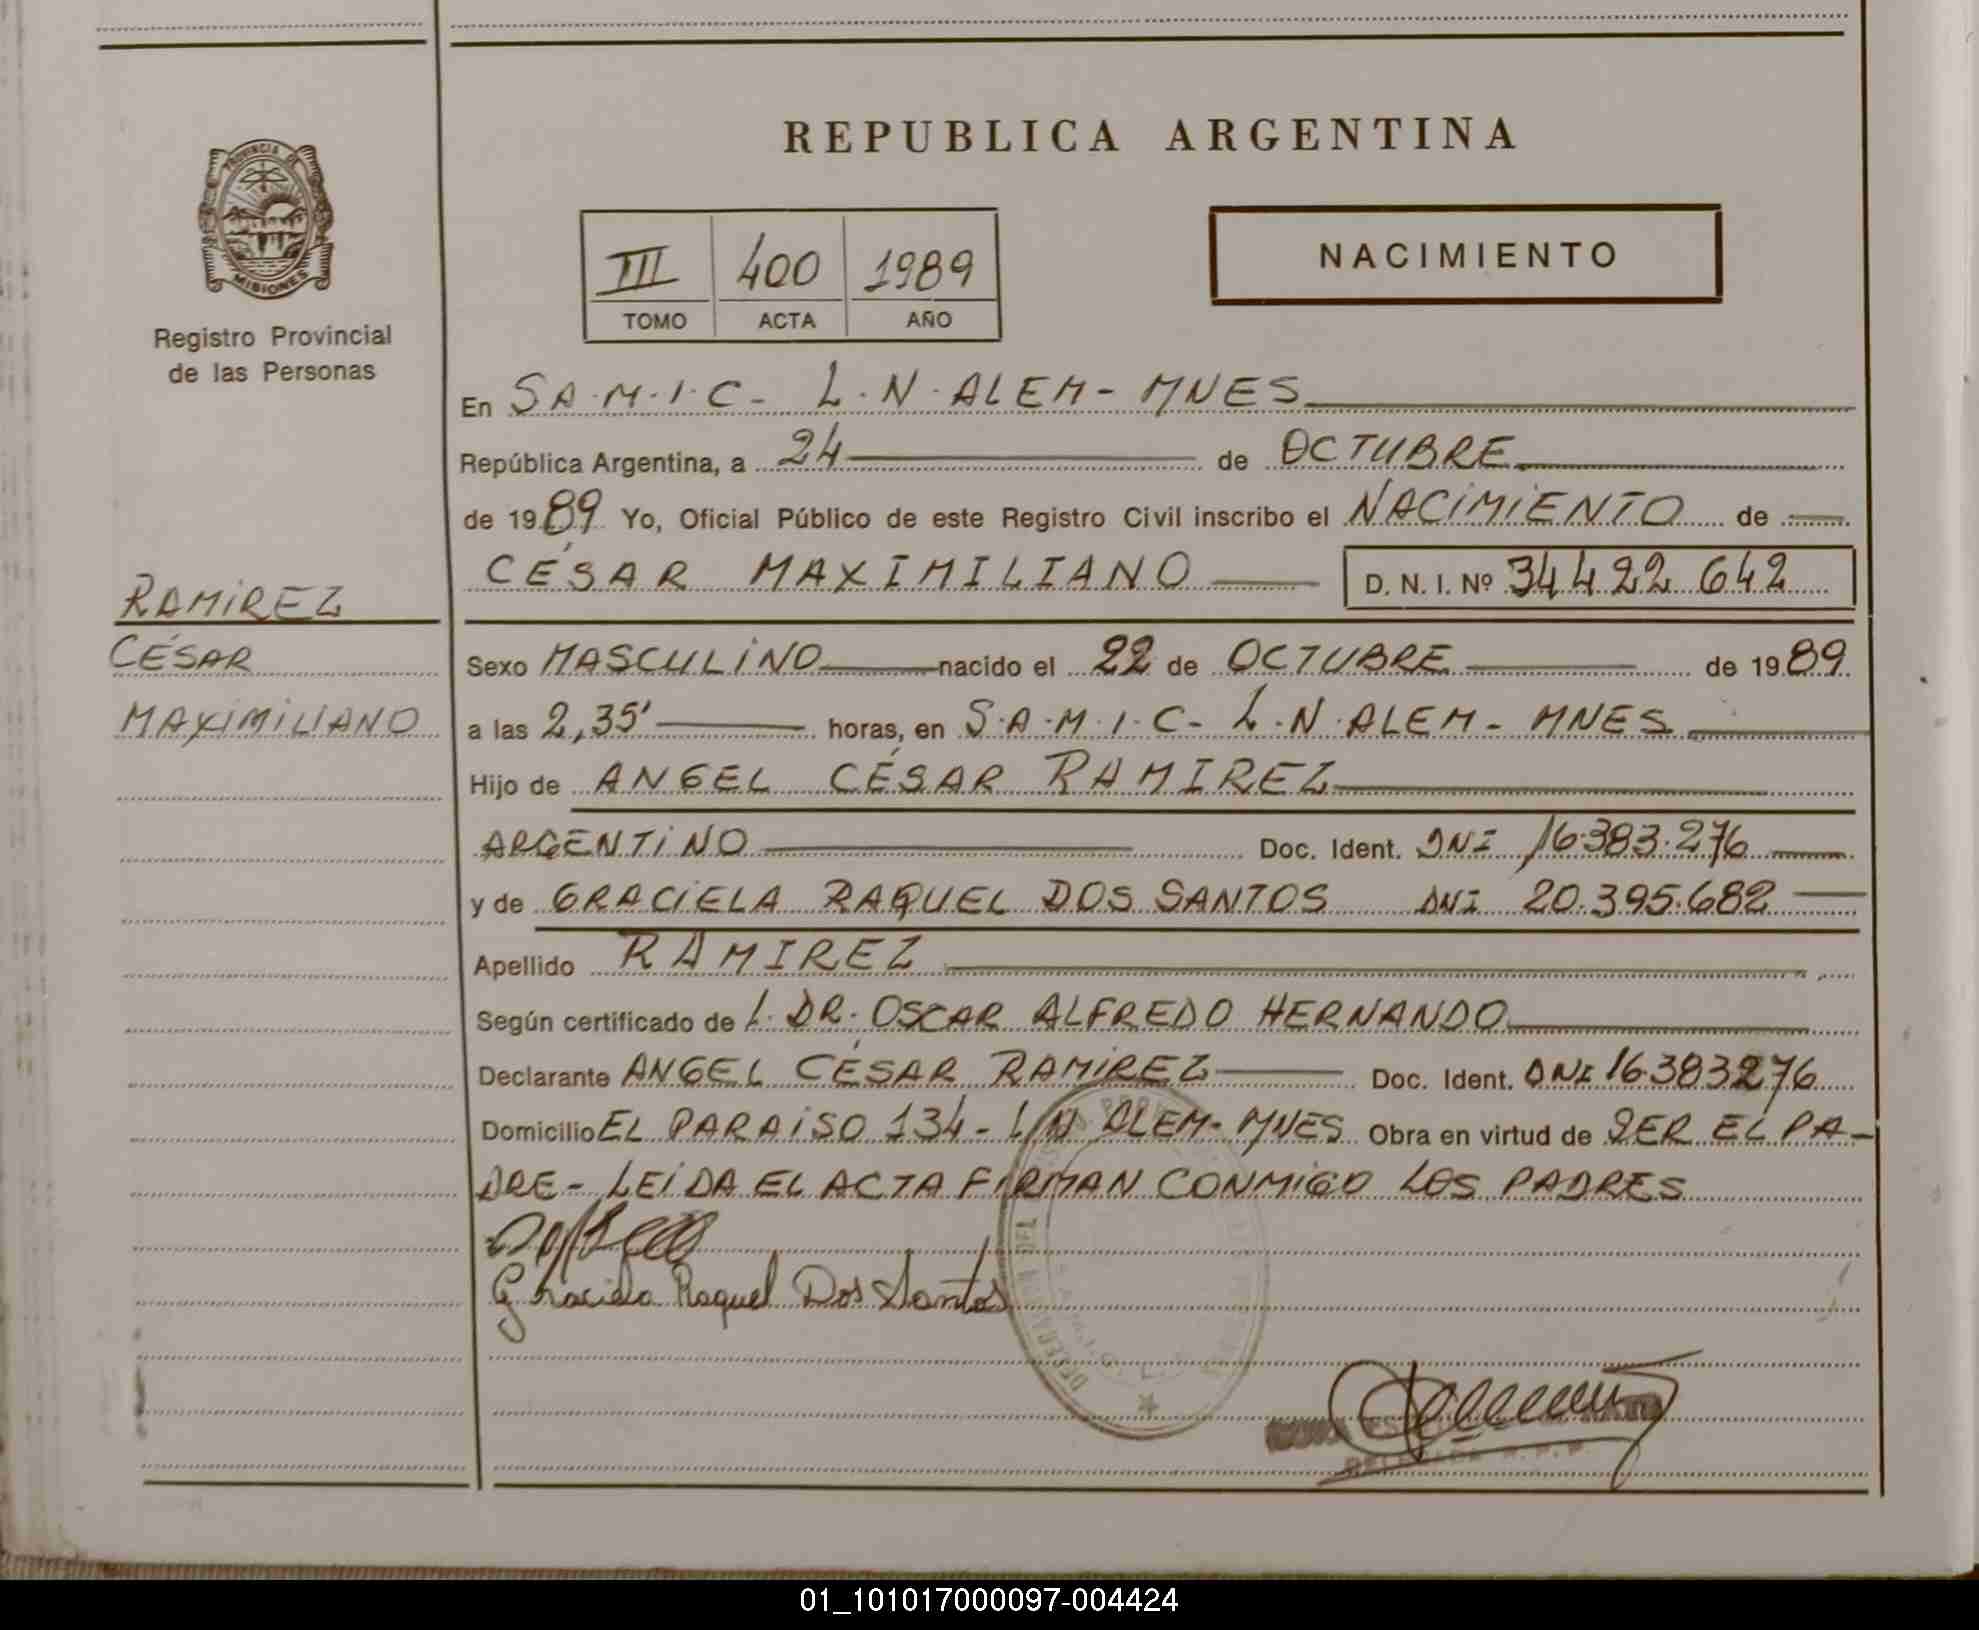 REPUBLICA ARGENTINA
PROVINCIA DE
MISIONES
Registro Provincial
de las Personas
III 400 1989
TOMO ACTA AÑO
NACIMIENTO
En S.A.M.I.C- L.N.ALEM- MNES
República Argentina, a 24 de OCTUBRE
de 1989 Yo, Oficial Público de este Registro Civil inscribo el NACIMIENTO de
CÉSAR MAXIMILIANO D. N. I. Nº 34422642
RAMIREZ
CÉSAR
MAXIMILIANO
Sexo MASCULINO nacido el 22 de OCTUBRE de 1989
a las 2,35' horas, en S.A.M.I.C- L.N.ALEM- MNES
Hijo de ANGEL CÉSAR RAMIREZ
ARGENTINO Doc. Ident. DNI 16.383.276
y de GRACIELA RAQUEL DOS SANTOS DNI 20.395.682
Apellido RAMIREZ
Según certificado de L. DR. OSCAR ALFREDO HERNANDO
Declarante ANGEL CÉSAR RAMIREZ Doc. Ident. DNI 16.383276
Domicilio EL PARAISO 134- L.N ALEM- MNES Obra en virtud de SER EL PA-
DRE- LEIDA EL ACTA FIRMAN CONMIGO LOS PADRES
Graciela Raquel Dos Santos
01_101017000097-004424